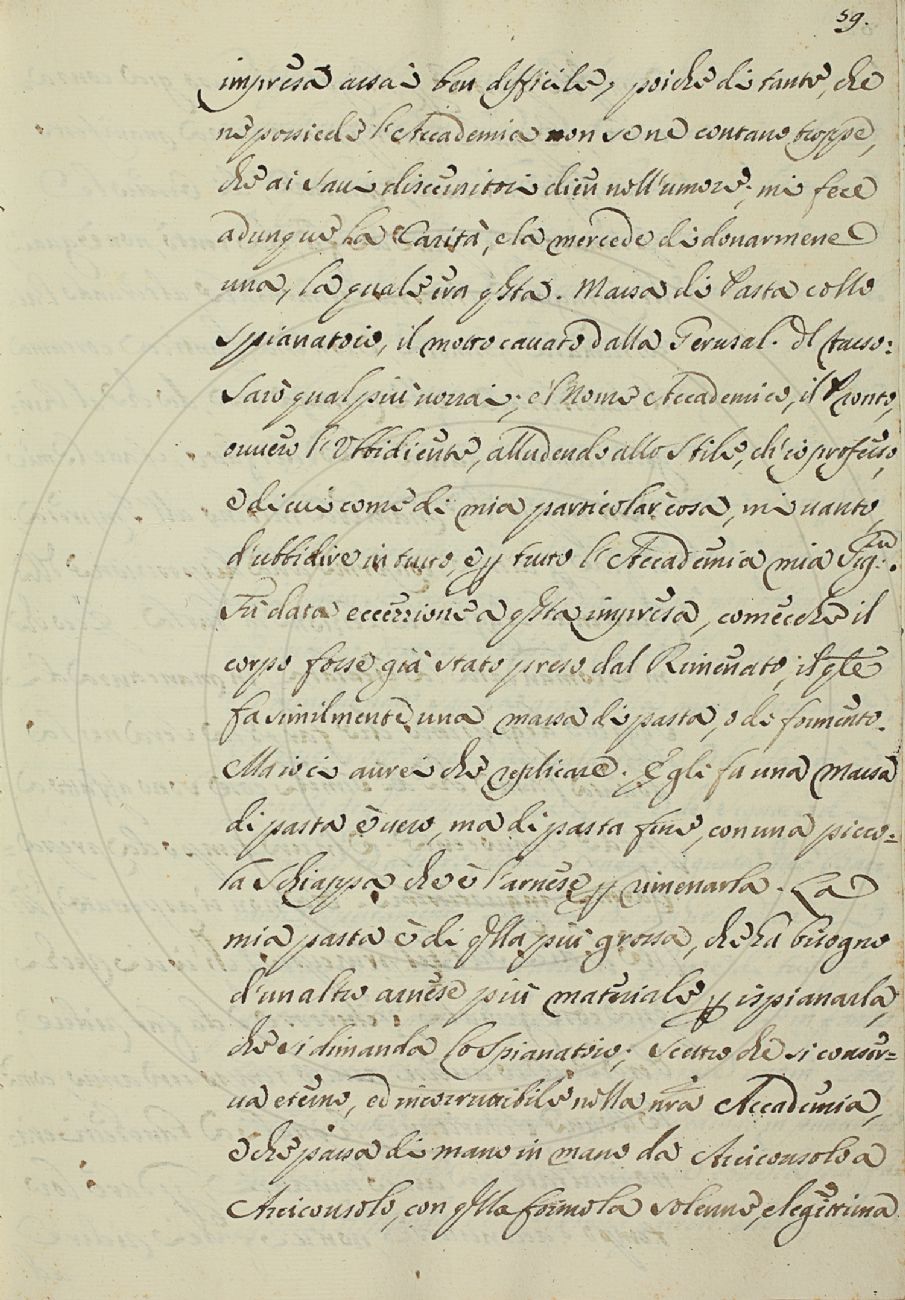 59.
impresa assai ben difficile, poiche di tante, che
ne possiede l'Accademia non se ne contano troppe,
che ai savi discernitori dien nell'umore; mi fece
adunque la Carità, e la mercede di donarmene
una, la quale era qsta. Massa di Pasta collo
Spianatoio, il motto cavato dalla Gerusal. dl Tasso:
Sarò qual più vorrai; e'l Nome Accademico, il Pronto,
ovvero l'Ubbidiente, alludendo allo Stile, ch'io professo,
e di cui come di mia particolar cosa, mi vanto,
d'ubbidire in tutto, e p tutto l'Accademia mia Sig.ra.
Fù data eccezzione a qsta impresa, comecche il
corpo fosse già stato preso dal Rimenato, il qle
fa similmente una massa di pasta, o di formento.
Ma io ci avrei che replicare. Egli fa una massa
di pasta è vero, ma di pasta fine, con una picco=
la Schiappa che è l'arnese p rimenarla. La
mia pasta è di qlla più grossa, che hà bisogno
d'un altro arnese più materiale p ispianarla,
che si dimanda lo Spianatoio; Scettro che si conser=
va eterno, ed incorruttibile nella nra Accademia,
e che passa di mano in mano da Arciconsolo a
Arciconsolo, con qlla formola solenne, e legittima